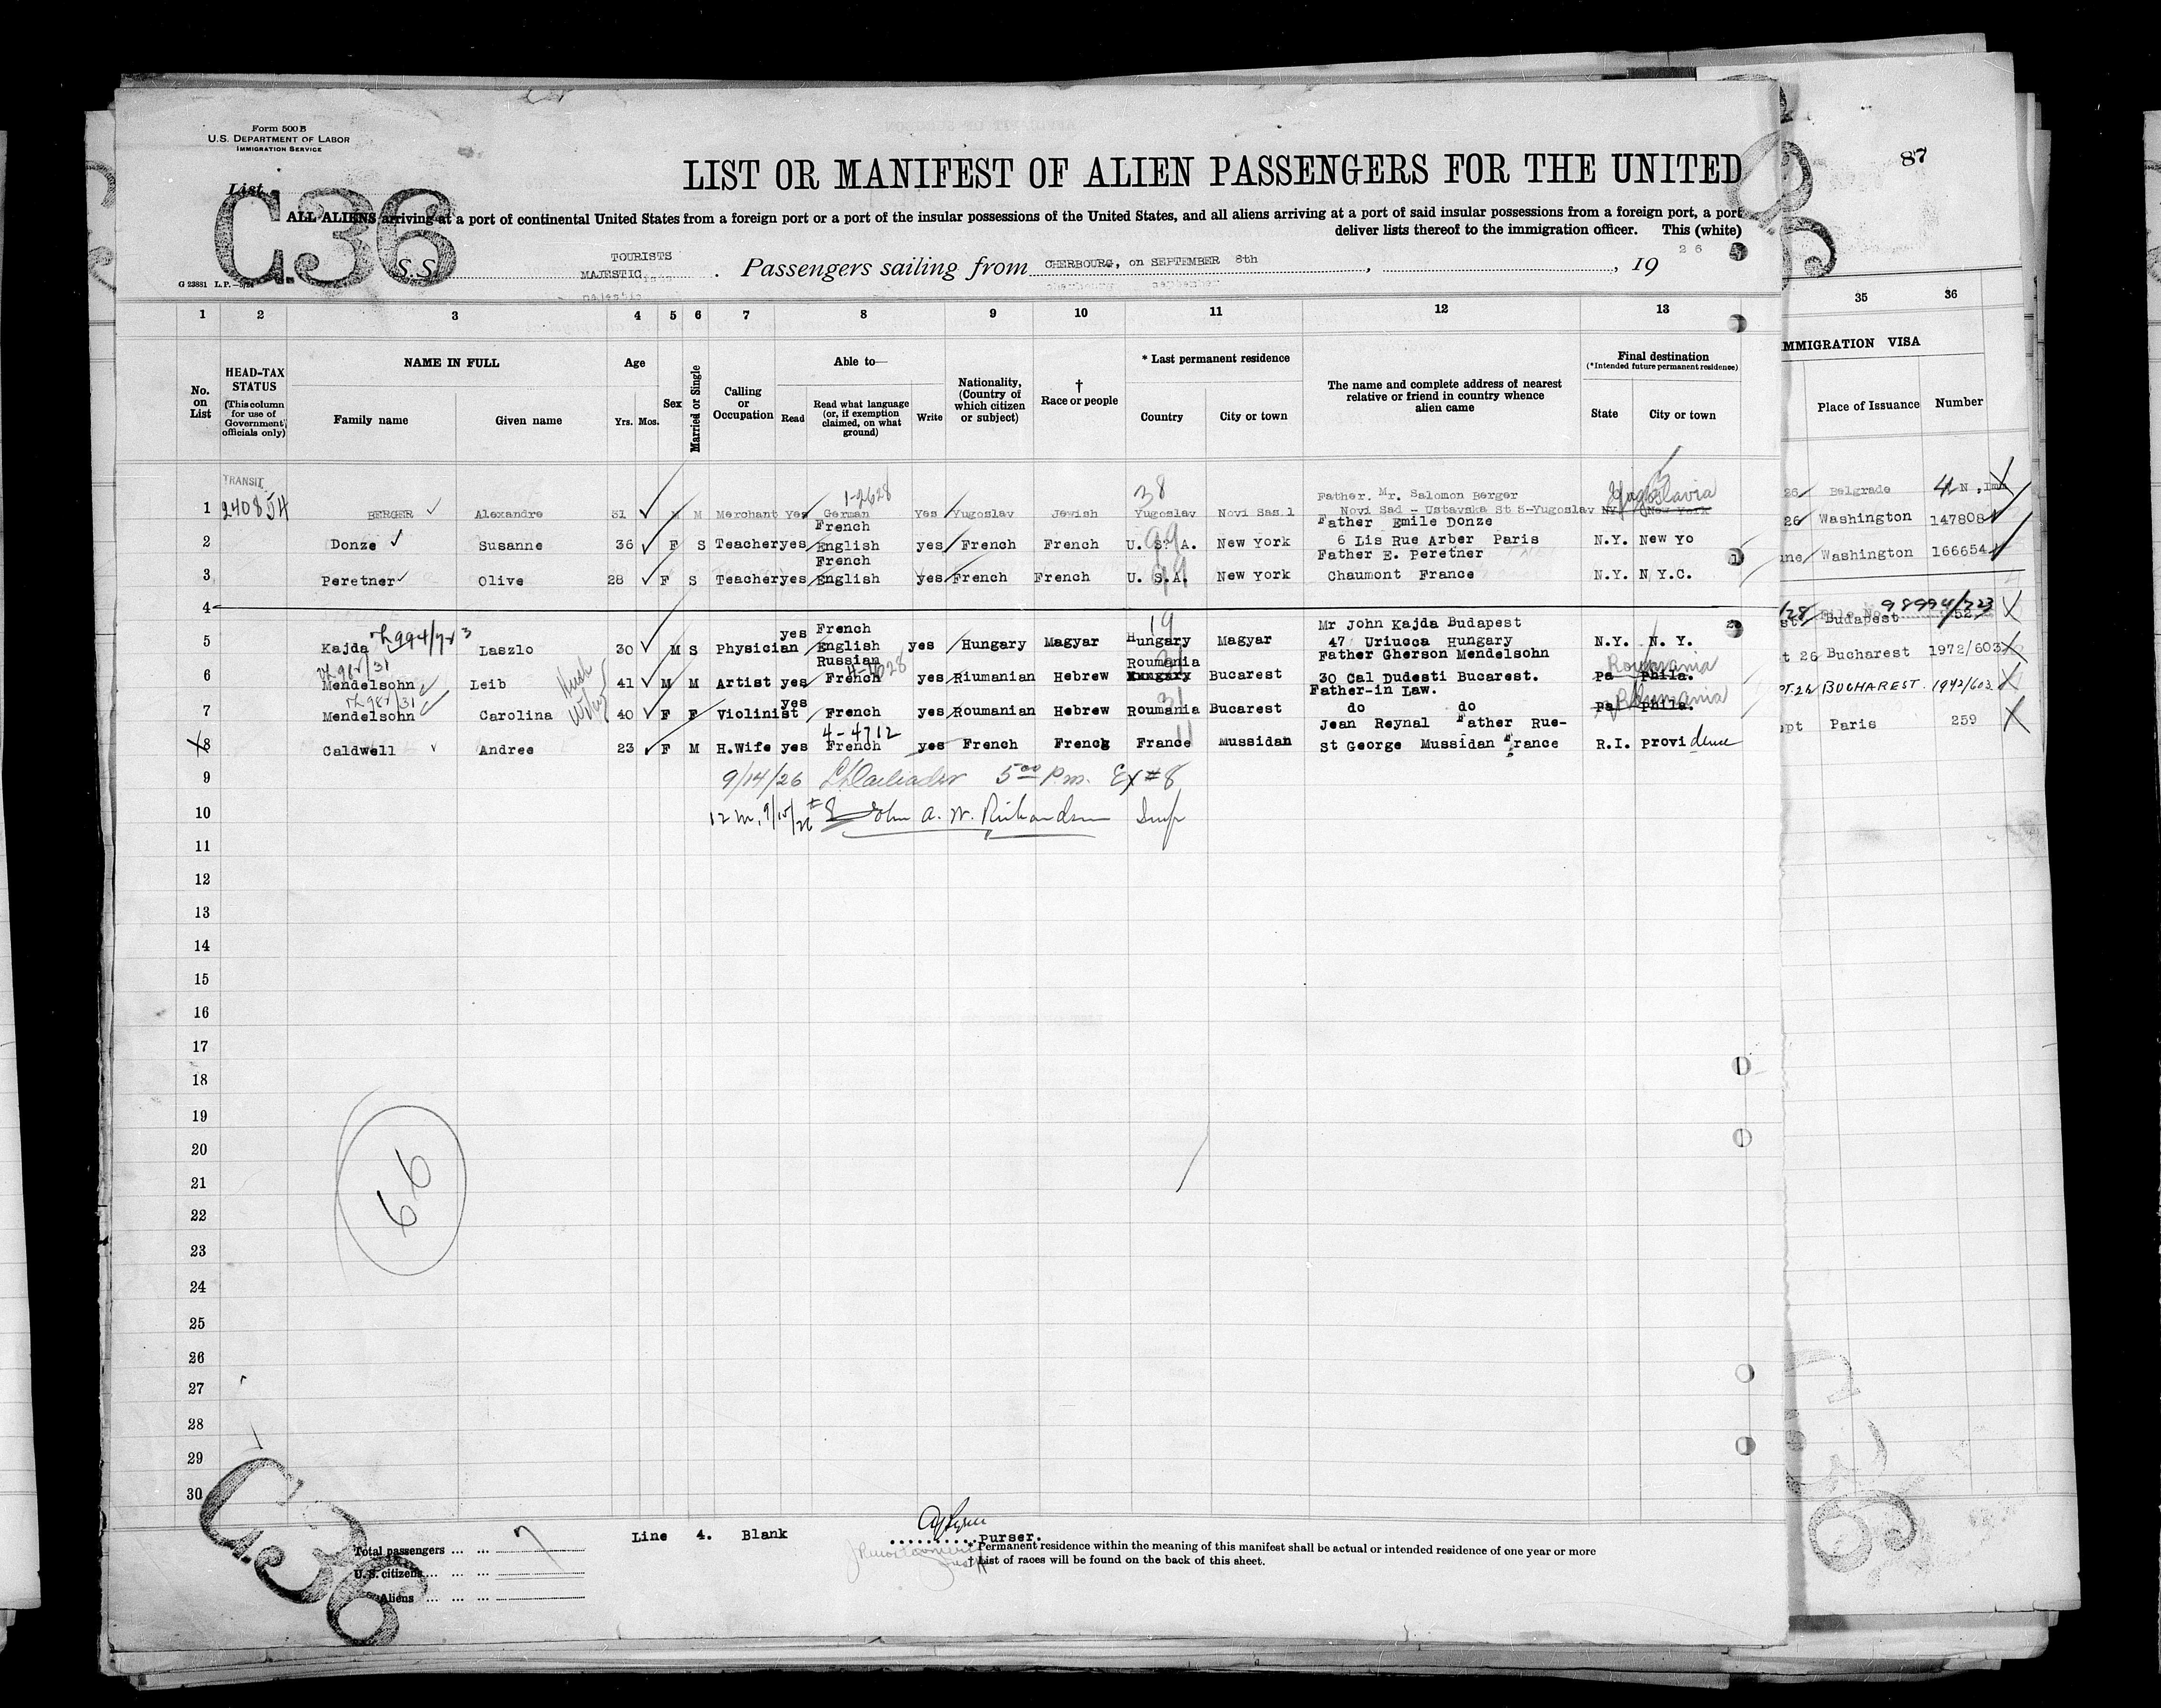 Form 500 B
U.S. DEPARTMENT OF LABOR
IMMIGRATION SERVICE
87
LIST OR MANIFEST OF ALIEN PASSENGERS FOR THE UNITED
List
C.36
ALL ALIENS arriving at a port of continental United States from a foreign port or a port of the insular possessions of the United States, and all aliens arriving at a port of said insular possessions from a foreign port, a port
deliver lists thereof to the immigration officer. This (white)
TOURISTS
S.S. MAJESTIC. Passengers sailing from CHERBOURG, on SEPTEMBER 8th, 19 26
G 23881 L.P.
1 2 3 4 5 6 7 8 9 10 11 12 13 35 36
No. on List
HEAD-TAX STATUS (This column for use of Government officials only)
NAME IN FULL Family name Given name
Age Yrs. Mos.
Sex
Married or Single
Calling or Occupation
Able to— Read Read what language (or, if exemption claimed, on what ground) Write
Nationality, (Country of which citizen or subject)
† Race or people
* Last permanent residence Country City or town
The name and complete address of nearest relative or friend in country whence alien came
Final destination (*Intended future permanent residence) State City or town
IMMIGRATION VISA Place of Issuance Number
TRANSIT 1-2628 38 Father. Mr. Salomon Berger Yugoslavia
1 240854 BERGER Alexandre 31 M M Merchant Yes German Yes Yugoslav Jewish Yugoslav Novi Sas.l Novi Sad - Ustavska St 8-Yugoslav NY. New York 26 Belgrade
French 99 Father Emile Donze
2 Donze Susanne 36 F S Teacher yes English yes French French U. S. A. New York 6 Lis Rue Arber Paris N.Y. New Yo 26 Washington 147808
French 99 Father E. Peretner
3 Peretner Olive 28 F S Teacher yes English yes French French U. S.A. New York Chaumont France N.Y. N Y.C. Washington 166654
4 98994/723
yes French 19 Mr John Kajda Budapest
5 Kajda 994/723 Laszlo 30 M S Physician English yes Hungary Magyar Hungary Magyar 47 Uriucca Hungary N.Y. N. Y. Budapest 52
Russian Roumania Father Gherson Mendelsohn Roumania
6 Mendelsohn Leib 41 M M Artist yes French yes Riumanian Hebrew Hungary Bucarest 30 Cal Dudesti Bucarest. Pa Phila. 26 Bucharest 1972/603
yes 31 Father-in Law. Roumania
7 Mendelsohn Carolina Wife 40 F F Violinist French yes Roumanian Hebrew Roumania Bucarest do do Pa Phila. PT.26 BUCHAREST. 1972/603
4-4712 11 Jean Reynal Father Rue-
8 Caldwell Andree 23 F M H.Wife yes French yes French French France Mussidan St George Mussidan France R.I. Providence pt Paris 259
9 9/14/26 5 00 P.m. Ex # 8
10 12 m, 9/15/26 #8 John A. W. Richardson Insp
11
12
13
14
15
16
17
18
19
20
21
22
23
24
25
26
27
28
29
30
66
C.36
Line 4. Blank
Purser.
Total passengers ... ... 7
U. S. citizens ... ... ...
Aliens ... ... ...
* Permanent residence within the meaning of this manifest shall be actual or intended residence of one year or more
† List of races will be found on the back of this sheet.